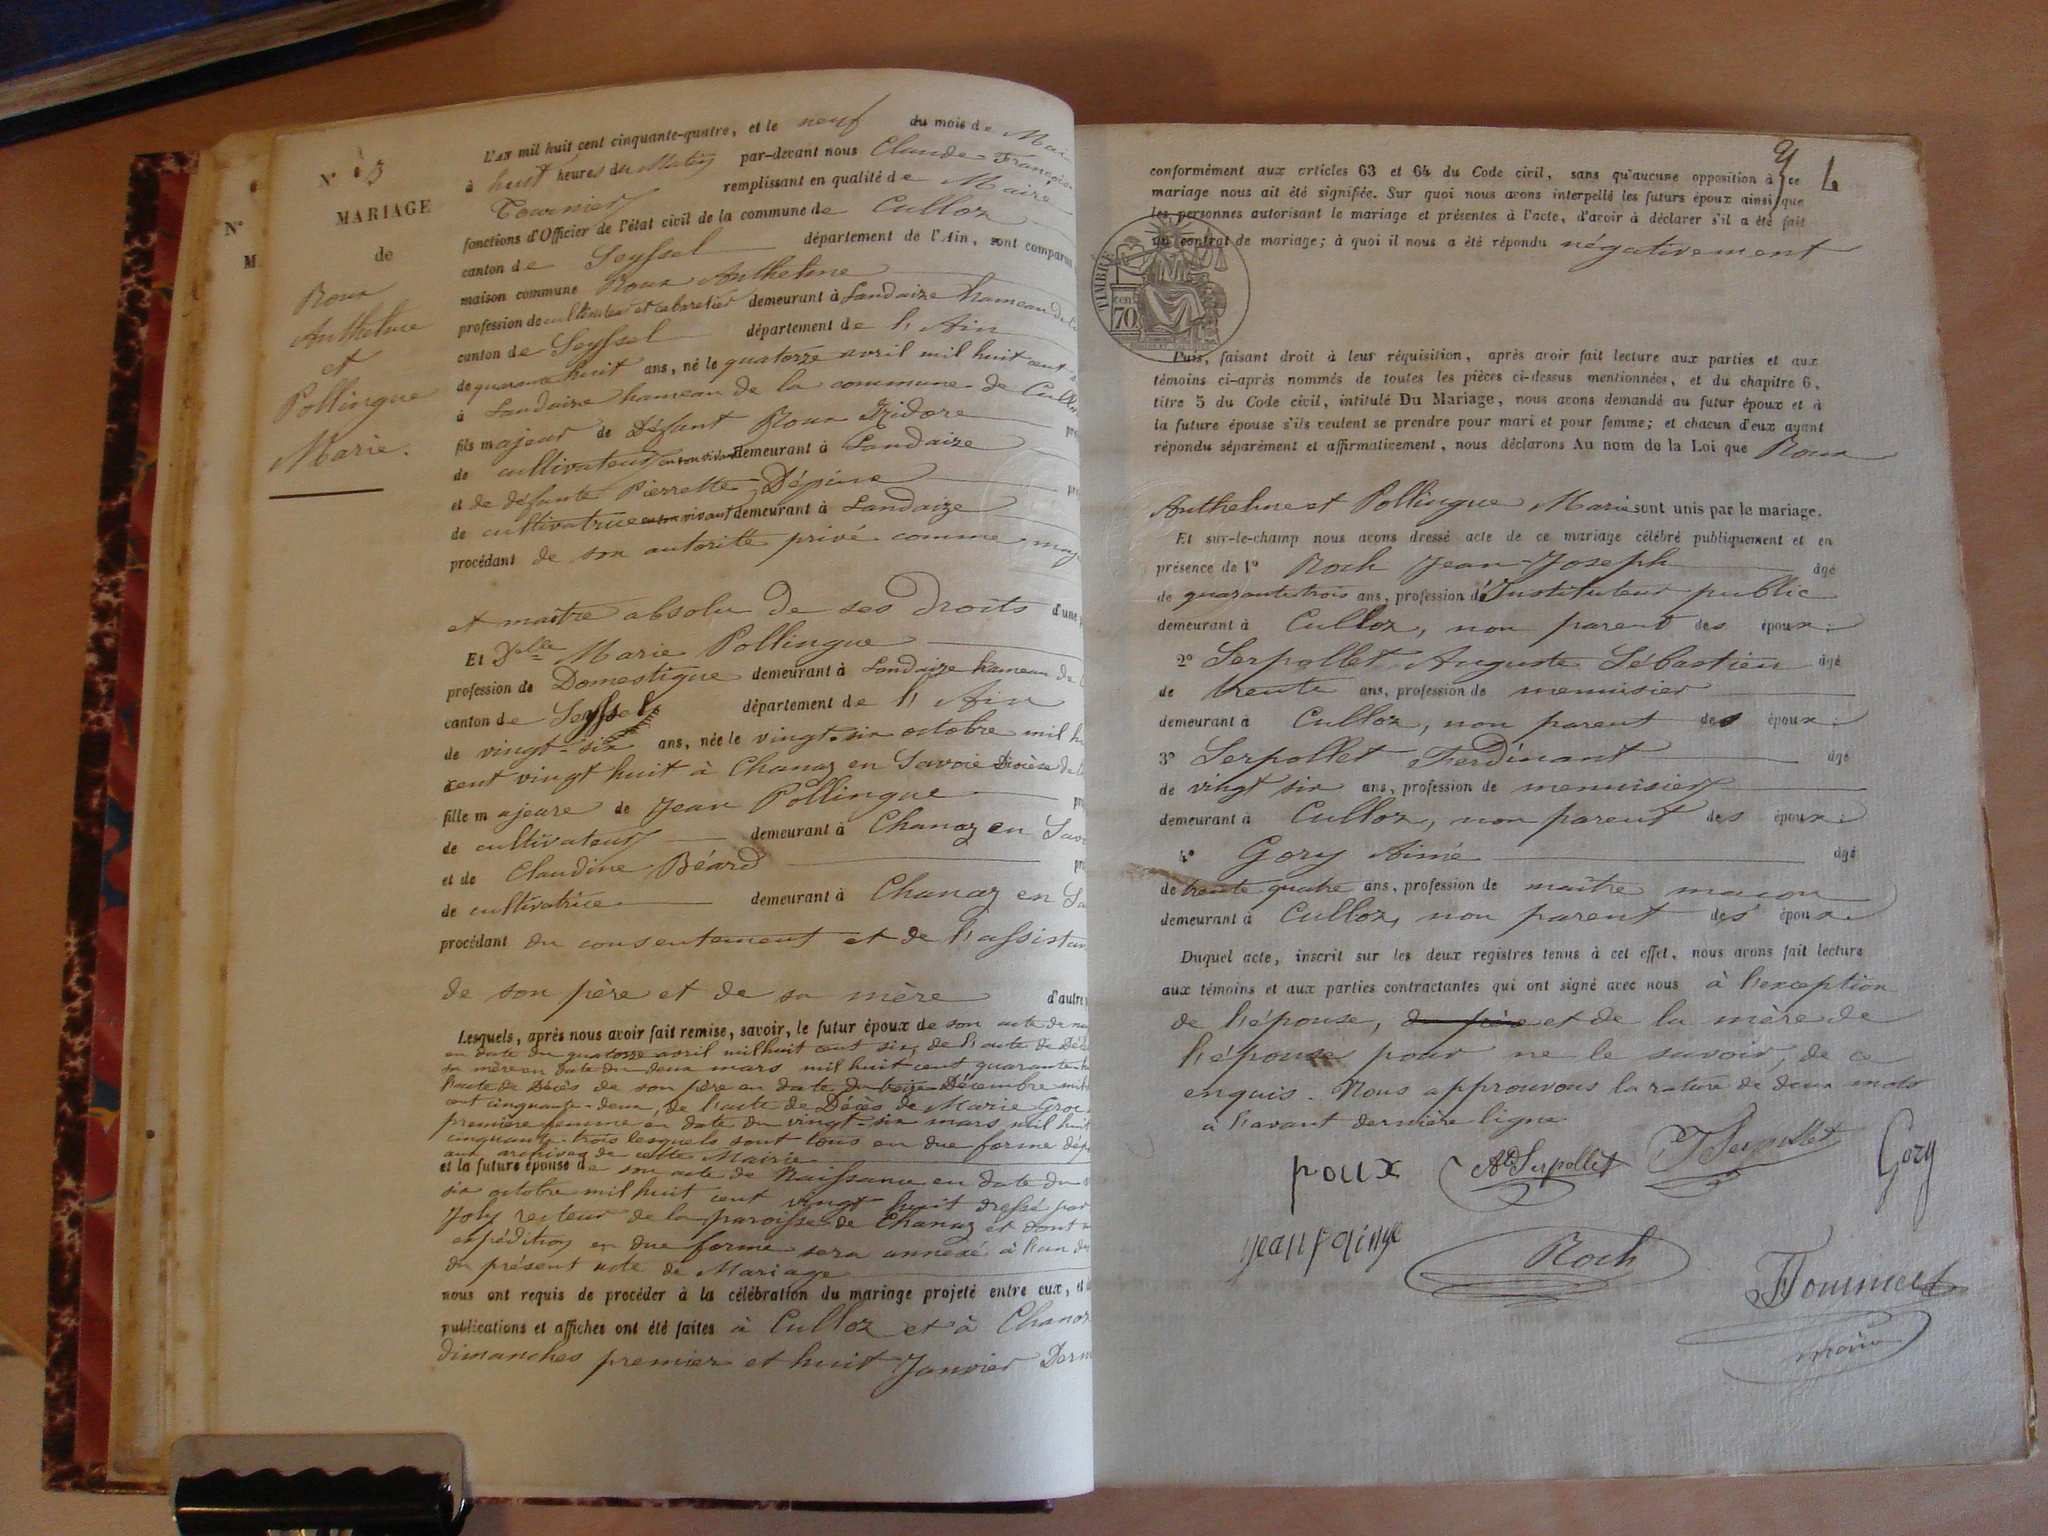 N° 3
MARIAGE
de
Roux
Anthelme
et
Pollingue
Marie.
N°
M
L'AN mil huit cent cinquante-quatre, et le neuf du mois de Mai
à huit heures du Matin par-devant nous Claude François
Tournier remplissant en qualité de Maire
fonctions d'Officier de l'état civil de la commune de Culloz
canton de Seyssel département de l'Ain, sont comparus
maison commune Roux Anthelme
profession de cultivateur et cabaretier demeurant à Landaize hameau de
canton de Seyssel département de l'Ain
de quarante huit ans, né le quatorze avril mil huit cent
à Landaize hameau de la commune de Culloz
fils majeur de Défunt Roux Izidore
de cultivateur en son vivant demeurant à Landaize
et de défunte Pierrette Dépine
de cultivatrice en son vivant demeurant à Landaize
procédant de son autorité privé comme
et maître absolu de ses droits d'une
Et Delle Marie Pollingue
profession de Domestique demeurant à Landaize hameau de
canton de Seyssel département de l'Ain
de vingt-six ans, née le vingt-six octobre mil
cent vingt huit à Chanaz en Savoie
fille majeure de Jean Pollingue
de cultivateur demeurant à Chanaz en
et de Claudine Béard
de cultivatrice demeurant à Chanaz en
procédant du consentement et de l'assistan
de son père et de sa mère d'autre
Lesquels, après nous avoir fait remise, savoir, le futur époux de son acte de
en date du quatorze avril mil huit cent six, de l'acte de
sa mère en date du deux mars mil huit cent quarante
l'acte de Décès de son père en date du treize Décembre mil
cent cinquante-deux, de l'acte de Décès de Marie
première femme en date du vingt-six mars mil huit
cinquante-trois lesquels sont tous en due forme
aux archives de cette Mairie
et la future épouse de son acte de Naissance en date du
six octobre mil huit cent vingt huit dressé par
Joly recteur de la paroisse de Chanaz et dont
expédition en due forme sera annexé à l'un
du présent acte de Mariage
nous ont requis de procéder à la célébration du mariage projeté entre eux, et
publications et affiches ont été faites à Culloz et à Chanaz
dimanches premier et huit Janvier
4
conformément aux articles 63 et 64 du Code civil, sans qu'aucune opposition à ce
mariage nous ait été signifiée. Sur quoi nous avons interpellé les futurs époux ainsi que
les personnes autorisant le mariage et présentes à l'acte, d'avoir à déclarer s'il a été fait
un contrat de mariage; à quoi il nous a été répondu négativement
TIMBRE
70
Puis, faisant droit à leur réquisition, après avoir fait lecture aux parties et aux
témoins ci-après nommés de toutes les pièces ci-dessus mentionnées, et du chapitre 6,
titre 5 du Code civil, intitulé Du Mariage, nous avons demandé au futur époux et à
la future épouse s'ils veulent se prendre pour mari et pour femme; et chacun d'eux ayant
répondu séparément et affirmativement, nous déclarons Au nom de la Loi que Roux
Anthelme et Pollingue Marie sont unis par le mariage.
Et sur-le-champ nous avons dressé acte de ce mariage célébré publiquement et en
présence de 1° Roch Jean-Joseph âgé
de quarante trois ans, profession d'Instituteur public
demeurant à Culloz, non parent des époux.
2° Serpollet Auguste Sébastien âgé
de trente ans, profession de menuisier
demeurant à Culloz, non parent des époux.
3° Serpollet Ferdinant âgé
de vingt six ans, profession de menuisier
demeurant à Culloz, non parent des époux.
4° Gory Aimé âgé
de trente quatre ans, profession de maître maçon
demeurant à Culloz, non parent des époux.
Duquel acte, inscrit sur les deux registres tenus à cet effet, nous avons fait lecture
aux témoins et aux parties contractantes qui ont signé avec nous à l'exception
de l'épouse, du père et de la mère de
l'épouse pour ne le savoir, de ce
enquis. Nous approuvons la rature de deux mots
à l'avant dernière ligne
Roux Ate Serpollet F Serpollet Gory
Roch
Tournier
maire